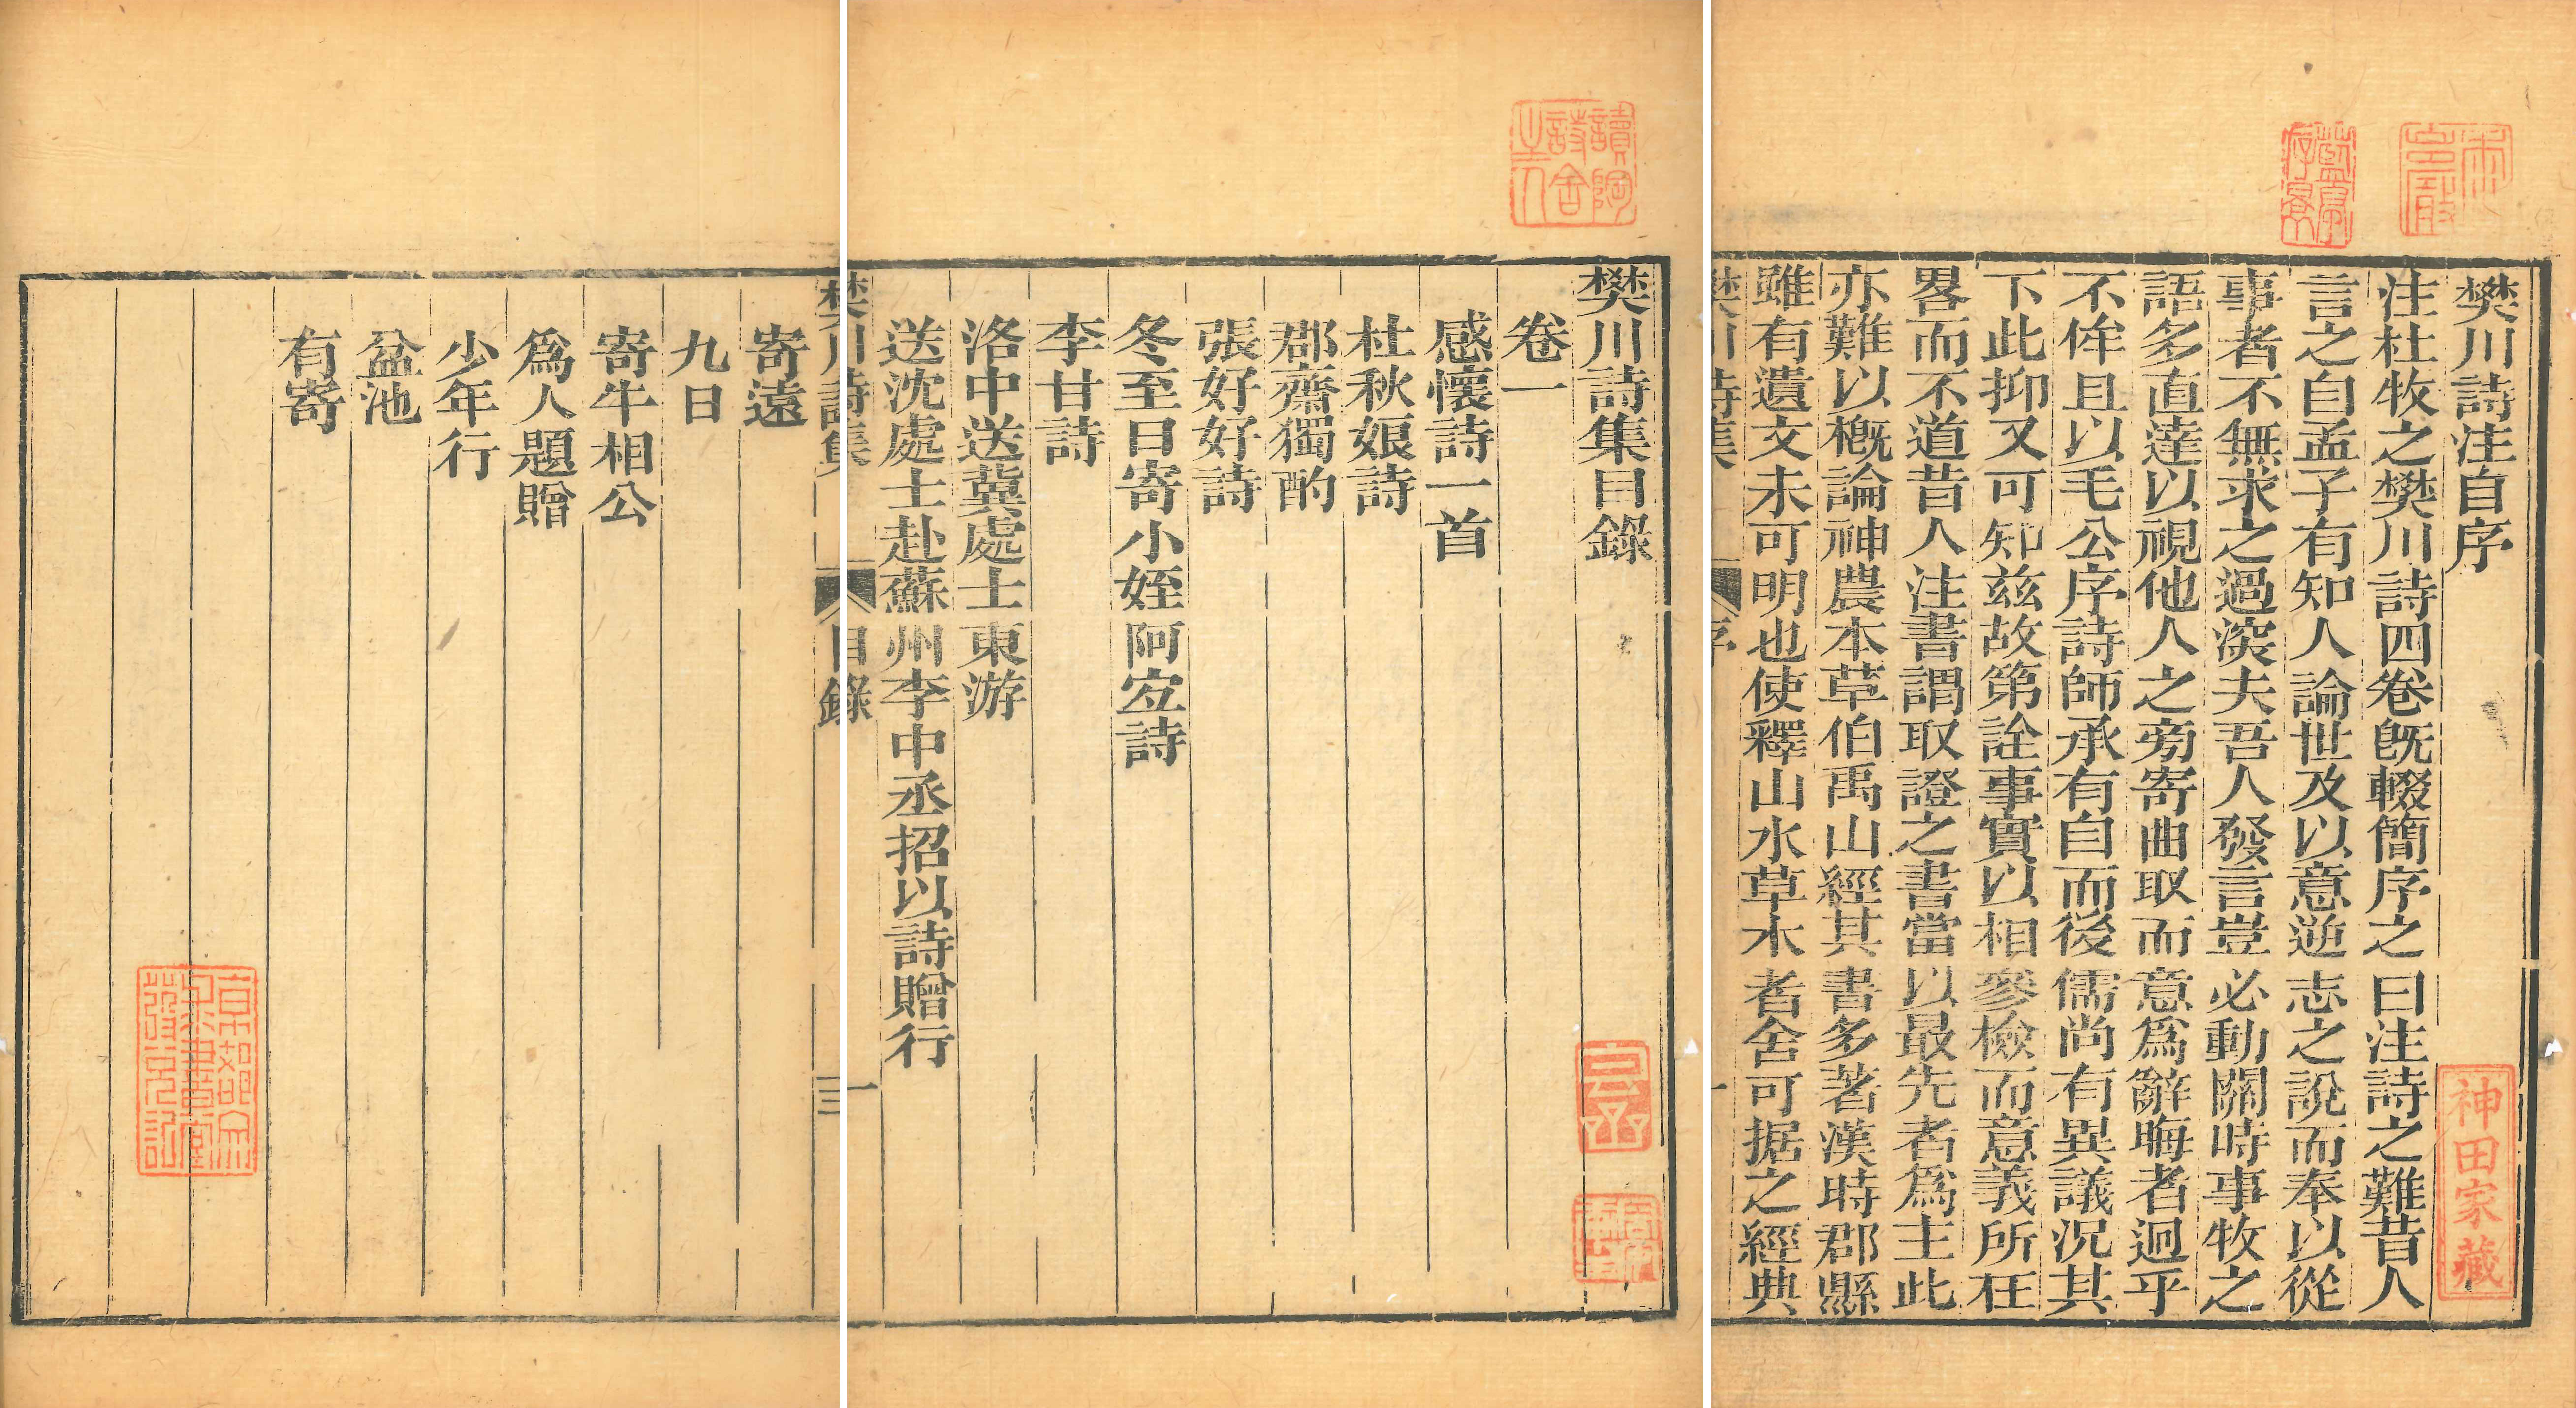 樊川詩注自序
注杜牧之樊川詩四卷旣輟簡序之曰注詩之難昔人
言之自孟子有知人論世及以意逆志之說而奉以從
事者不無求之過深夫吾人發言豈必動關時事牧之
語多直達以視他人之旁寄曲取而意爲辭晦者迥乎
不侔且以毛公序詩師承有自而後儒尚有異議況其
下此抑又可知茲故第詮事實以相參檢而意義所在
畧而不道昔人注書謂取證之書當以最先者爲主此
亦難以槪論神農本草伯禹山經其書多著漢時郡縣
雖有遺文未可明也使釋山水草木者舍可据之經典
樊川詩集
序
一
神田家藏
樊川詩集目錄
卷一
感懷詩一首
杜秋娘詩
郡齋獨酌
張好好詩
冬至日寄小姪阿宜詩
李甘詩
洛中送冀處士東游
送沈處士赴蘇州李中丞招以詩贈行
一
讀陶詩舍主人
樊川詩集
目錄
三
寄遠
九日
寄牛相公
爲人題贈
少年行
盆池
有寄